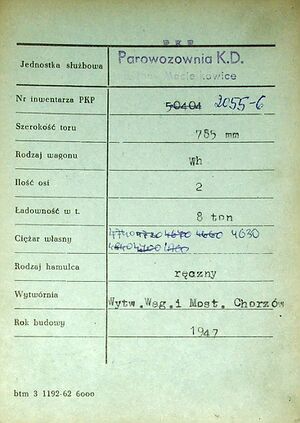 PKP
Parowozownia K.D.
Jednostka służbowa
Nr inwentarza PKP 50404 2055-6
Szerokość toru 785 mm
Rodzaj wagonu Wh
Ilość osi 2
Ładowność w t. 8 ton
Ciężar własny 4660 4630
Rodzaj hamulca ręczny
Wytwórnia Wytw.Wag.i Most. Chorzów
Rok budowy 1947
btm 3 1192-62 6000